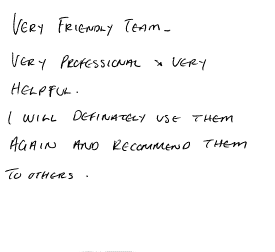 VERY FRIENDLY TEAM-
VERY PROFESSIONAL & VERY
HELPFUL.
I WILL DEFINATELY USE THEM
AGAIN AND RECOMMEND THEM
TO OTHERS .